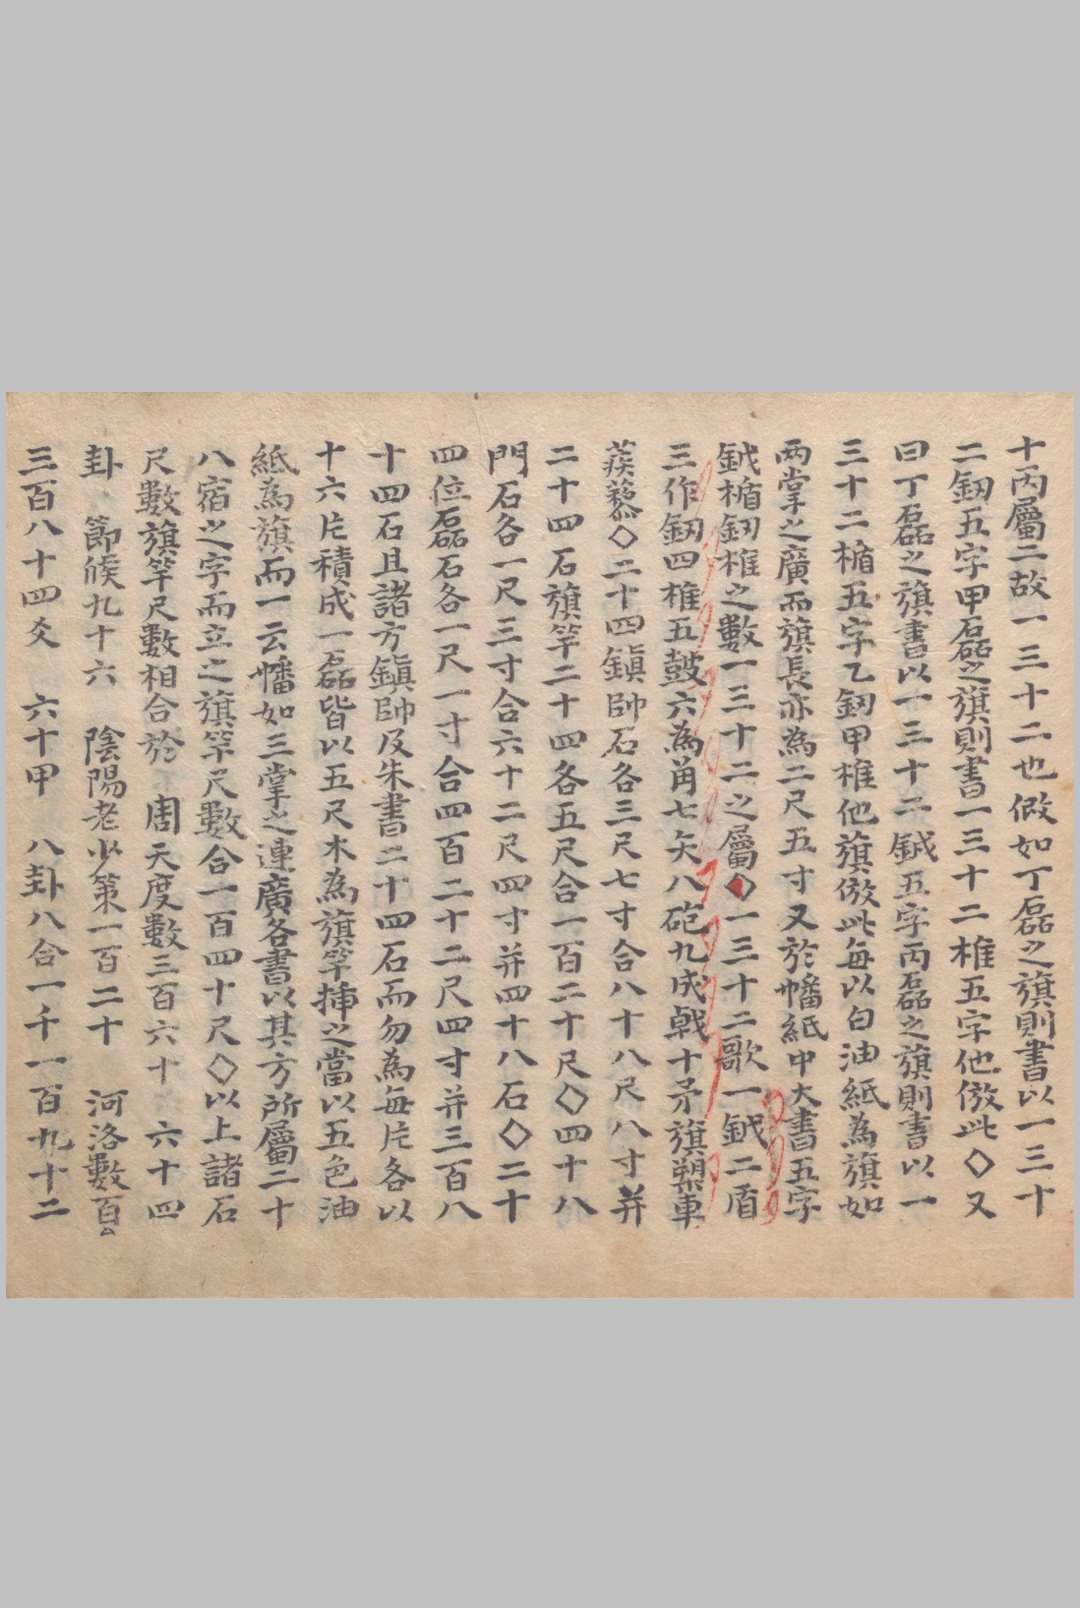 十丙屬二故一三十二也假如丁磊之旗則書以一三十
二釰五字甲磊之旗則書一三十二椎五字他倣此◇又
曰丁磊之旗書以一三十二鉞五字丙磊之旗則書以一
三十二楯五字乙釰甲椎他旗倣此每以白油紙為旗如
兩掌之廣而旗長亦為二尺五寸又於幡紙中大書五字
鉞楯釰椎之數一三十二之屬◇一三十二歌一鉞二盾
三作釰四椎五鼓六為角七矢八砲九成戟十矛旗槊車
蒺藜◇二十四鎭帥石各三尺七寸合八十八尺八寸并
二十四石旗竿二十四各五尺合一百二十尺◇四十八
門石各一尺三寸合六十二尺四寸并四十八石◇二十
四位磊石各一尺一寸合四百二十二尺四寸并三百八
十四石且諸方鎭帥及朱書二十四石而勿為每片各以
十六片積成一磊皆以五尺木為旗竿揷之當以五色油
紙為旗而一云幡如三掌之連廣各書以其方所屬二十
八宿之字而立之旗竿尺數合一百四十尺◇以上諸石
尺數旗竿尺數相合於 周天度數三百六十 六十四
卦 節候九十六 陰陽老少策一百二十 河洛數百
三百八十四爻 六十甲 八卦八合一千一百九十二